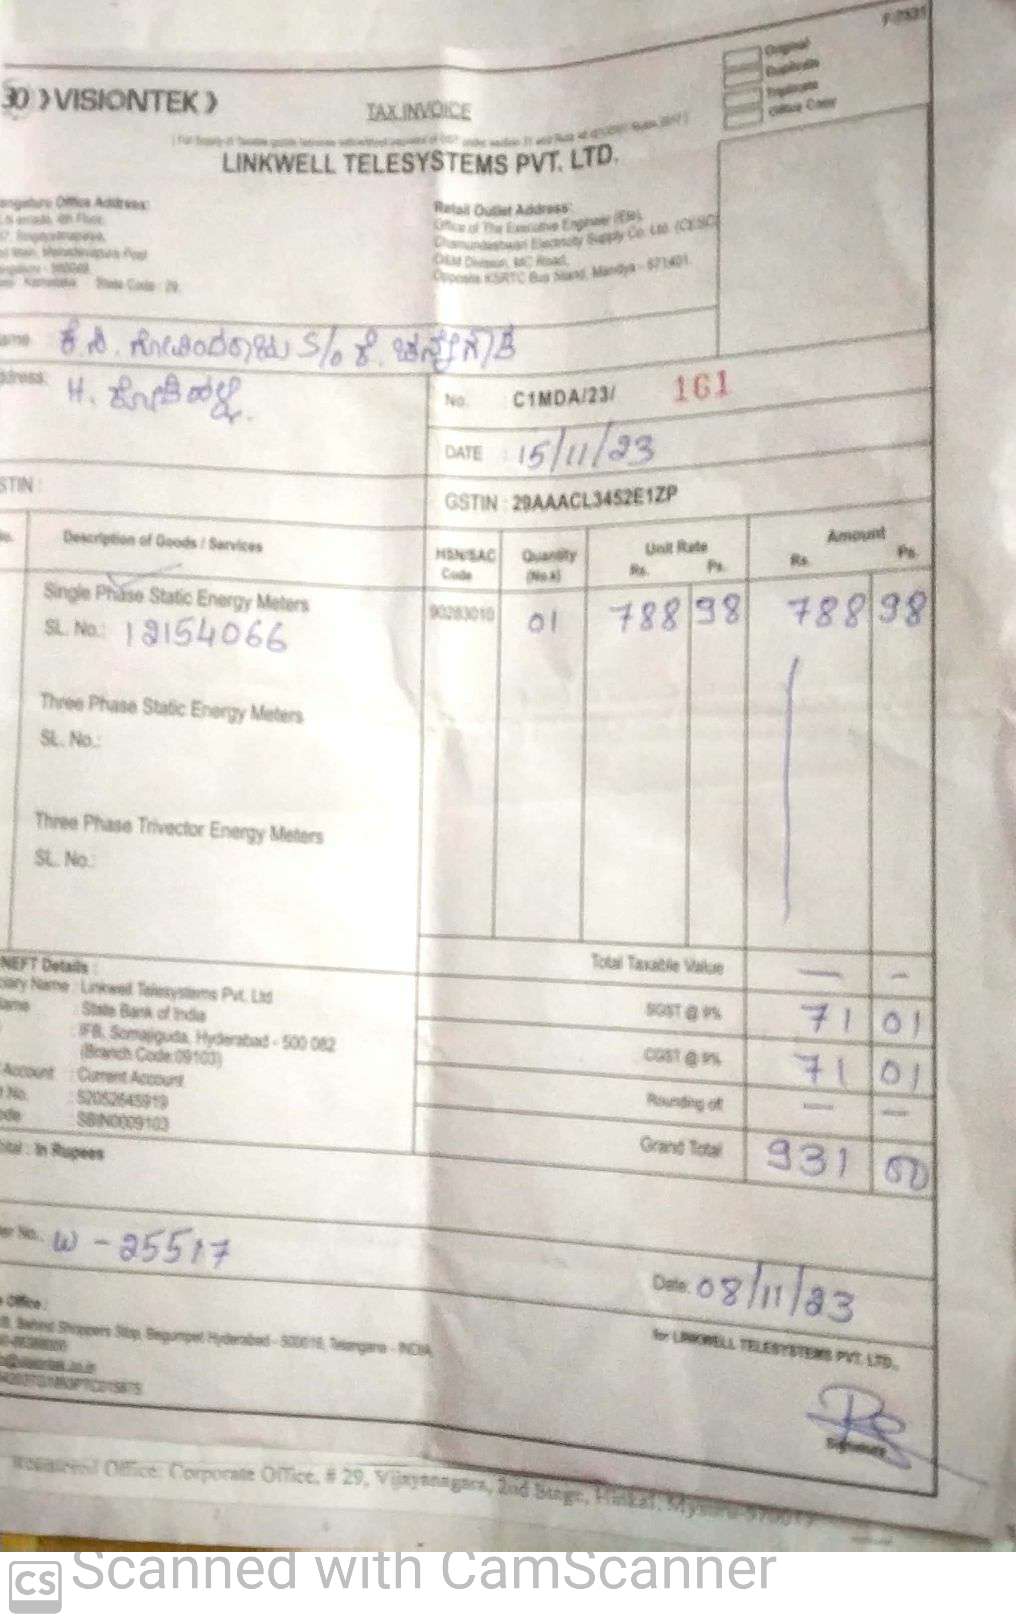 F-7531
Original
Duplicate
Triplicate
Office Copy
30 VISIONTEK
TAX INVOICE
LINKWELL TELESYSTEMS PVT. LTD.
Office Address:
Retail Outlet Address:
Office of The Executive Engineer (Ele),
Chamundeshwari Electricity Supply Co. Ltd. (CESC)
O&M Division, MC Road,
Opposite KSRTC Bus Stand, Mandya - 571401.
State Code : 29
S/o ಕೆ.
H. ಕೋಡಿಹಳ್ಳಿ.
No. C1MDA/23/ 161
DATE : 15/11/23
GSTIN : 29AAACL3452E1ZP
Description of Goods / Services
HSN/SAC Code
Quantity (No.s)
Unit Rate
Rs. Ps.
Amount
Rs. Ps.
Single Phase Static Energy Meters 90283010 01 788 98 788 98
SL. No.: 12154066
Three Phase Static Energy Meters
SL. No.:
Three Phase Trivector Energy Meters
SL. No.:
Total Taxable Value — -
SGST @ 9% 71 01
CGST @ 9% 71 01
Rounding of — —
Grand Total 931 00
NEFT Details :
Name : Linkwell Telesystems Pvt. Ltd
: State Bank of India
: IFB, Somajiguda, Hyderabad - 500 082
(Branch Code:09103)
Account : Current Account
No. : 52052645919
: SBIN0009103
In Rupees
No. W - 25517
Date: 08/11/23
Office :
Behind Shoppers Stop, Begumpet Hyderabad - 500016, Telangana - INDIA
for LINKWELL TELESYSTEMS PVT. LTD.,
Signature
Registered Office: Corporate Office, # 29, Vijayanagara, 2nd Stage, Hinkal, Mysuru-570017
CS Scanned with CamScanner